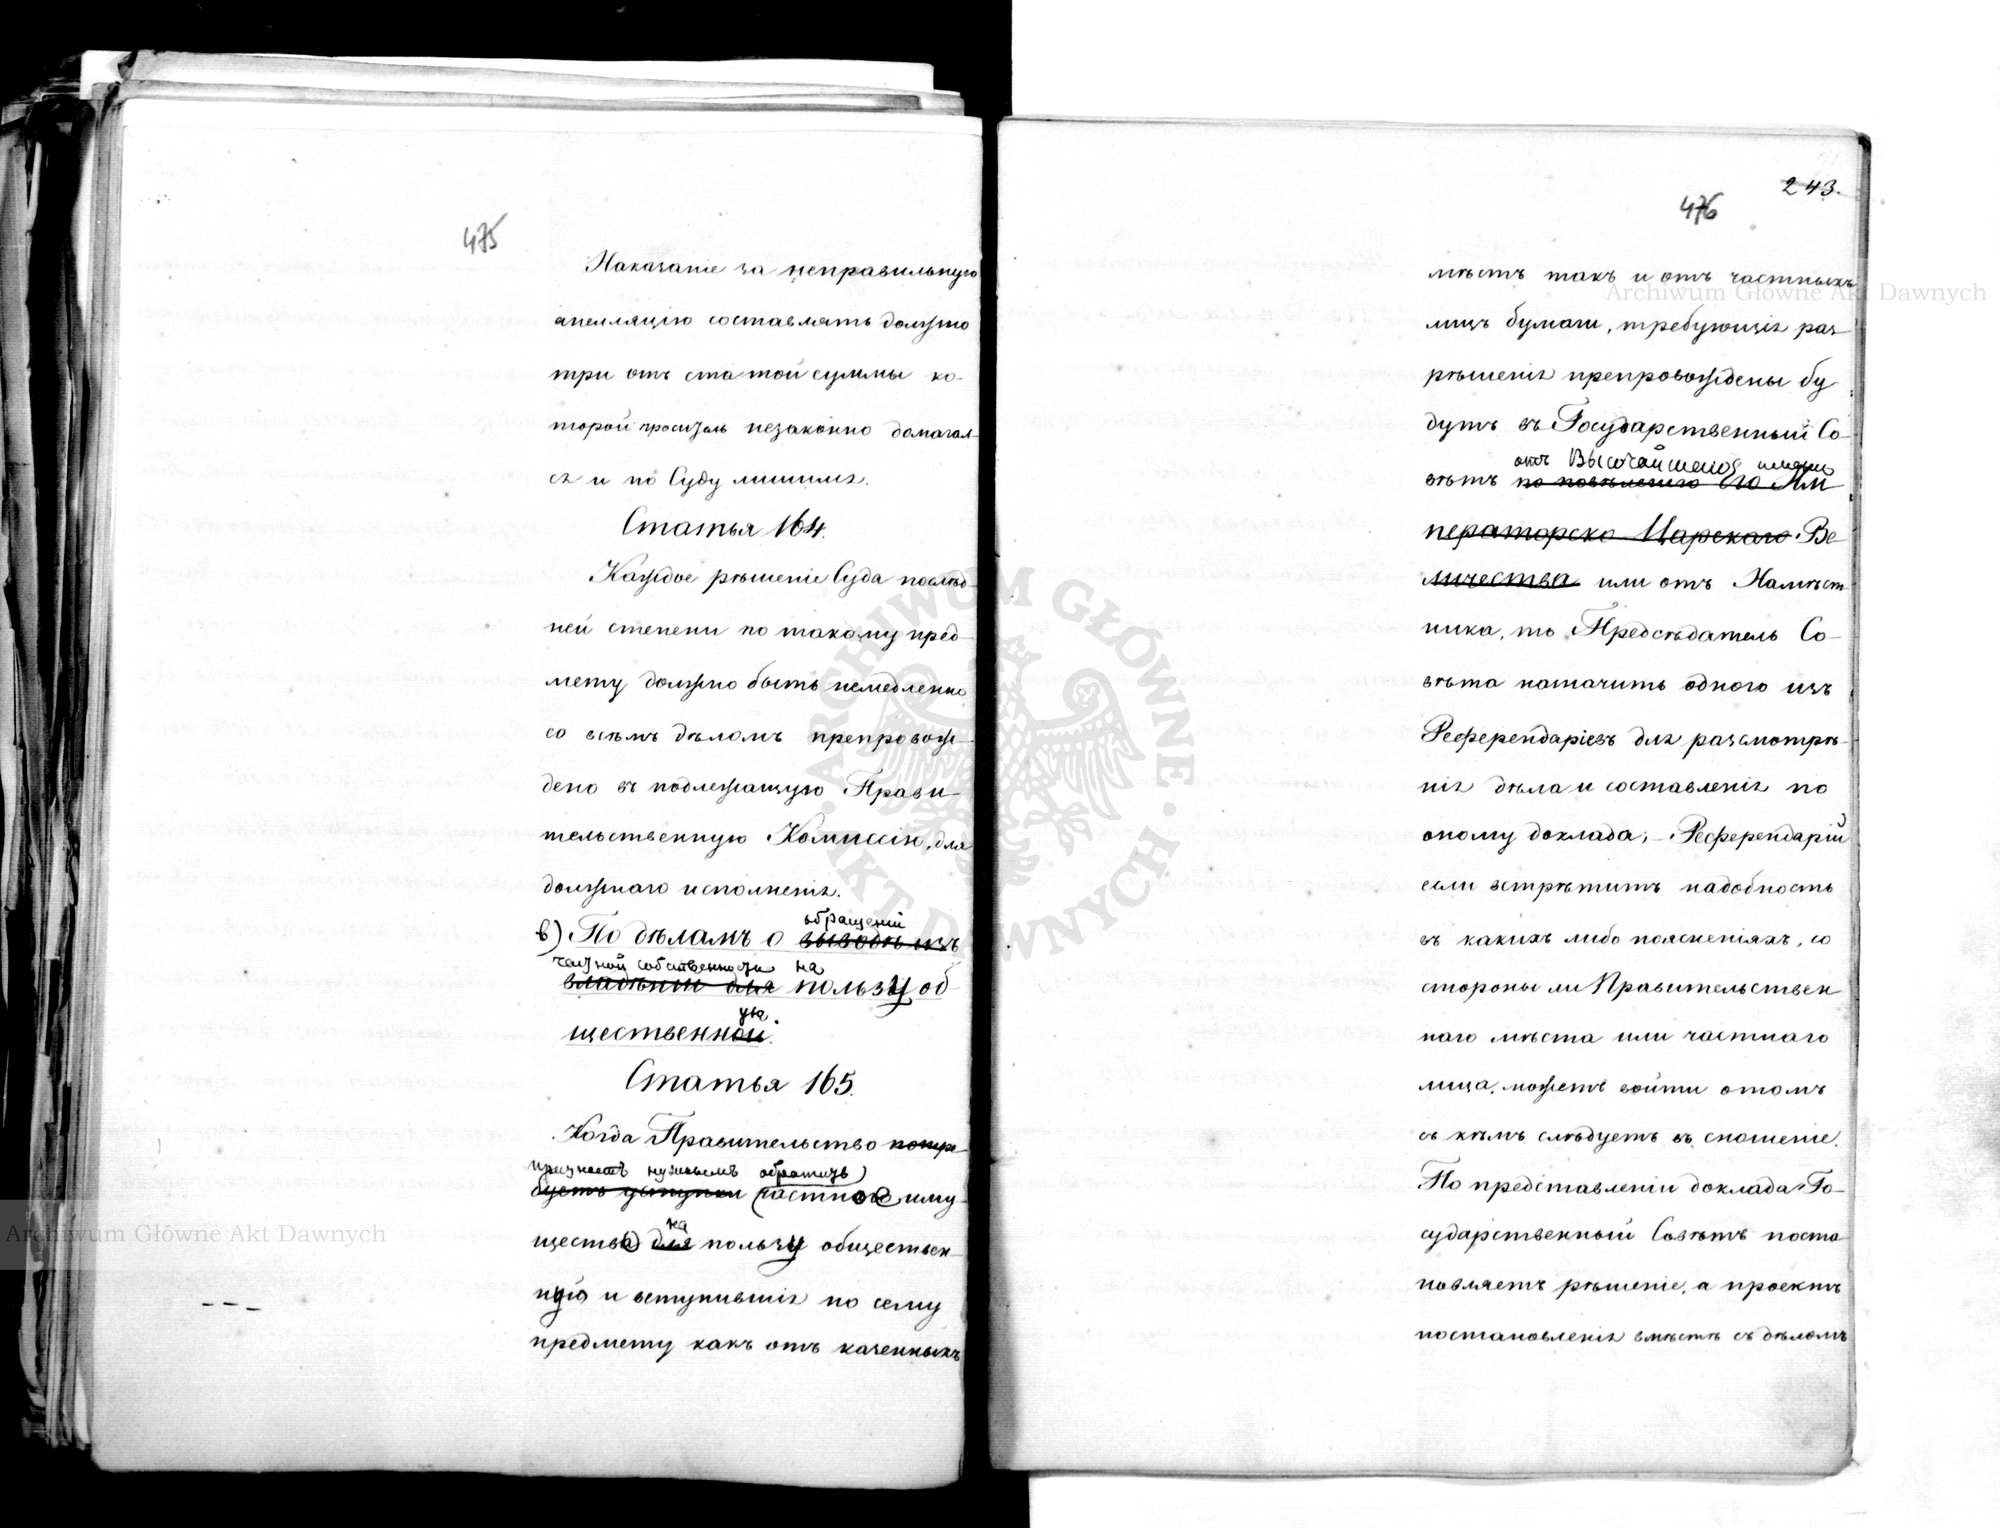 475
Наказаніе за неправильную
апелляцію составлять должно
три отъ ста той суммы ко-
торой проситель незаконно домагал-
ся и по Суду лишился.
Статья 164.
Каждое рѣшеніе Суда послѣд-
ней степени по такому пред-
мету должно быть немедленно
со всѣмъ дѣломъ препровож-
дено въ подлежащую Прави-
тельственную Комиссію, для
должнаго исполненія.
обращеніи
в) По дѣламъ о
частной собственности на
владѣніи для пользу об-
ую
щественной.
Статья 165.
Когда Правительство потре-
признаетъ нужнымъ обратить
буетъ уступки частное иму-
на
щество для пользу обществен-
ную и вступившія по сему
предмету какъ отъ казенныхъ
243.
476
мѣстъ такъ и отъ частныхъ
лицъ бумаги, требующія раз-
рѣшенія препровождены бу-
дутъ въ Государственный Со-
отъ Высочайшаго имени
вѣтъ по повѣленію Его Им-
ператорско Царскаго Ве-
личества или отъ Намѣст-
ника, то Предсѣдатель Со-
вѣта назначитъ одного изъ
Референдаріевъ для разсмотрѣ-
нія дѣла и составленія по
оному доклада; Референдарій
если встрѣтитъ надобность
въ какихъ либо поясненіяхъ, со
стороны ли Правительствен
наго мѣста или частнаго
лица, можетъ войти о томъ
съ кѣмъ слѣдуетъ въ сношеніе.
По представленіи доклада Го-
сударственный Совѣтъ поста-
новляетъ рѣшеніе, а проектъ
постановленія вмѣстѣ съ дѣломъ
Archiwum Główne Akt Dawnych
Archiwum Główne Akt Dawnych
ARCHIWUM GŁÓWNE · AKT DAWNYCH ·